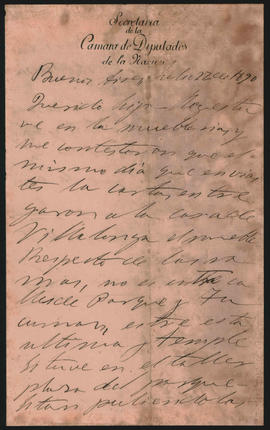 Secretaría
de la
Cámara de Diputados
de la Nación
Buenos Aires 1890
Querido hijo - Hoy estu
ve en la mueblería y
me contestaron que el
mismo día que envias
tes la carta entre
garon a la casa de
Villalonga el mueble
Respecto de las ra
mas, no es
desde Parque y Tu
cuman, entre esta
ultima y Temple
Estuve en el taller
plaza del parque
Estan puliendo la